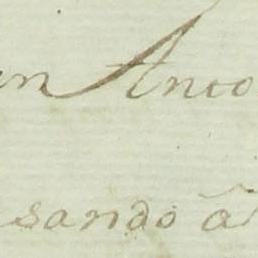 n Anto
sando â